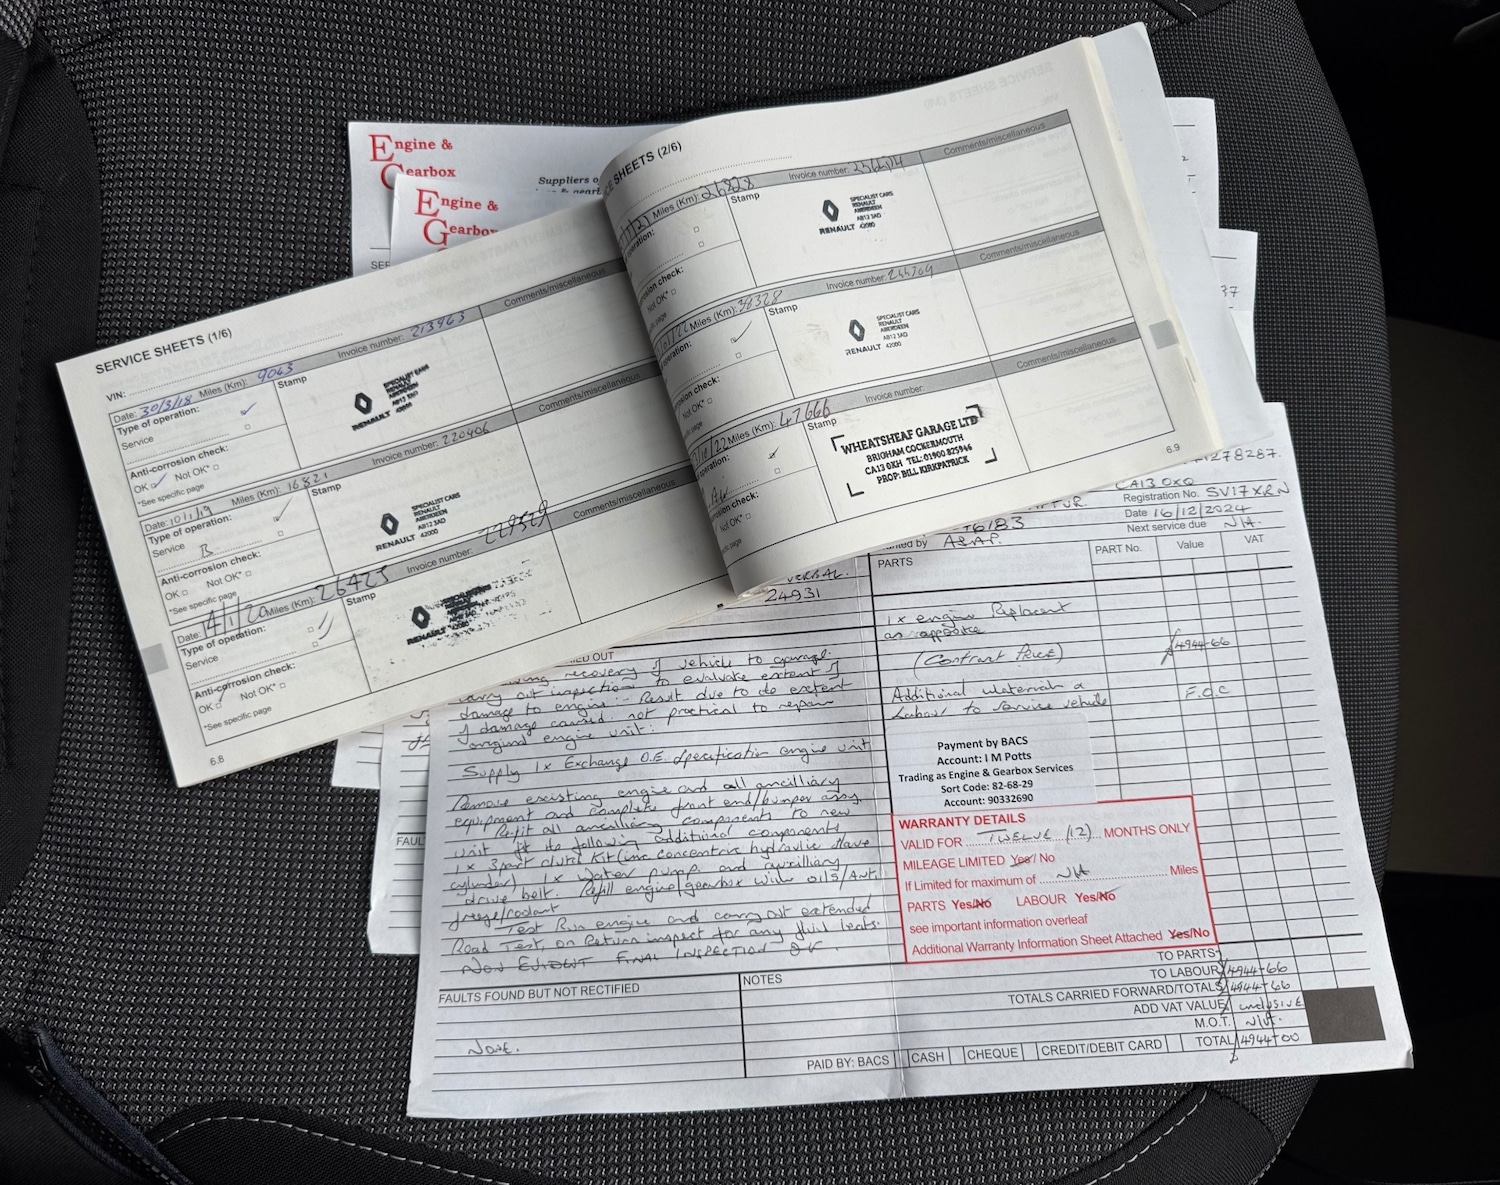 Engine &
Gearbox
Suppliers o
Engine &
Gearbox
SERVICE SHEETS (1/6)
VIN:
Date: 30/3/18 Miles (Km): 9063 Invoice number: 213963
Type of operation:
Service
Anti-corrosion check:
OK Not OK*
*See specific page
Stamp
Comments/miscellaneous
RENAULT
Date: 10/1/19 Miles (Km): 16821 Invoice number: 220406
Type of operation:
Service B
Anti-corrosion check:
Not OK*
OK
*See specific page
Stamp
Comments/miscellaneous
SPECIALIST CARS
RENAULT
ABERDEEN
AB12 3AD
RENAULT 42000
Date: 14/1/20 Miles (Km): 26425 Invoice number: 229529
Type of operation:
Service
Anti-corrosion check:
OK Not OK*
*See specific page
Stamp
Comments/miscellaneous
RENAULT
6.8
SHEETS (2/6)
Miles (Km): Invoice number:
operation:
check:
Not OK*
Stamp
Comments/miscellaneous
SPECIALIST CARS
RENAULT
ABERDEEN
AB12 3AD
RENAULT 42000
Miles (Km): 38328 Invoice number: 244709
operation:
check:
Not OK*
Stamp
Comments/miscellaneous
SPECIALIST CARS
RENAULT
ABERDEEN
AB12 3AD
RENAULT 42000
Miles (Km): 47666 Invoice number:
operation:
check:
Not OK*
Stamp
Comments/miscellaneous
WHEATSHEAF GARAGE LTD
BRIGHAM COCKERMOUTH
CA13 0XH TEL: 01900 825946
PROP: BILL KIRKPATRICK
6.9
37
278287.
CA13 0XQ
Registration No. SV17XRN
Date 16/12/2024
Next service due N/A.
6183
by ASAP.
PARTS
PART No.
Value
VAT
24931
1x engine Replacent
as apposite
(Contract Price) £4944-66
Additional Materials &
Labour to service vehicle F.O.C
OUT
recovery of vehicle to garage.
carry out inspection to evaluate extent of
damage to engine:- Result due to the extent
of damage caused not practical to repair
original engine unit:
Supply 1x Exchange O.E. Specification engine unit
Remove existing engine and all ancilliary
equipment and complete front end/bumper assy.
Refit all ancilliary components to new
unit fit the following additional components
1x 3part clutch Kit (inc concentric hydraulic slave
cylinder) 1x Water pump. and auxilliary
drive belt. Refill engine/gearbox with oils/Anti
freeze/coolant
Test Run engine and carry out extended
Road Test, on Return inspect for any fluid leaks.
NON EVIDENT FINAL INSPECTION OK.
Payment by BACS
Account: I M Potts
Trading as Engine & Gearbox Services
Sort Code: 82-68-29
Account: 90332690
WARRANTY DETAILS
VALID FOR TWELVE (12) MONTHS ONLY
MILEAGE LIMITED Yes/ No
If Limited for maximum of N/A Miles
PARTS Yes/No LABOUR Yes/No
see important information overleaf
Additional Warranty Information Sheet Attached Yes/No
FAUL
FAULTS FOUND BUT NOT RECTIFIED
None.
NOTES
TO PARTS
TO LABOUR £4944-66
TOTALS CARRIED FORWARD/TOTALS £4944-66
ADD VAT VALUE inclusive
M.O.T. N/A.
PAID BY: BACS CASH CHEQUE CREDIT/DEBIT CARD TOTAL £4944-00